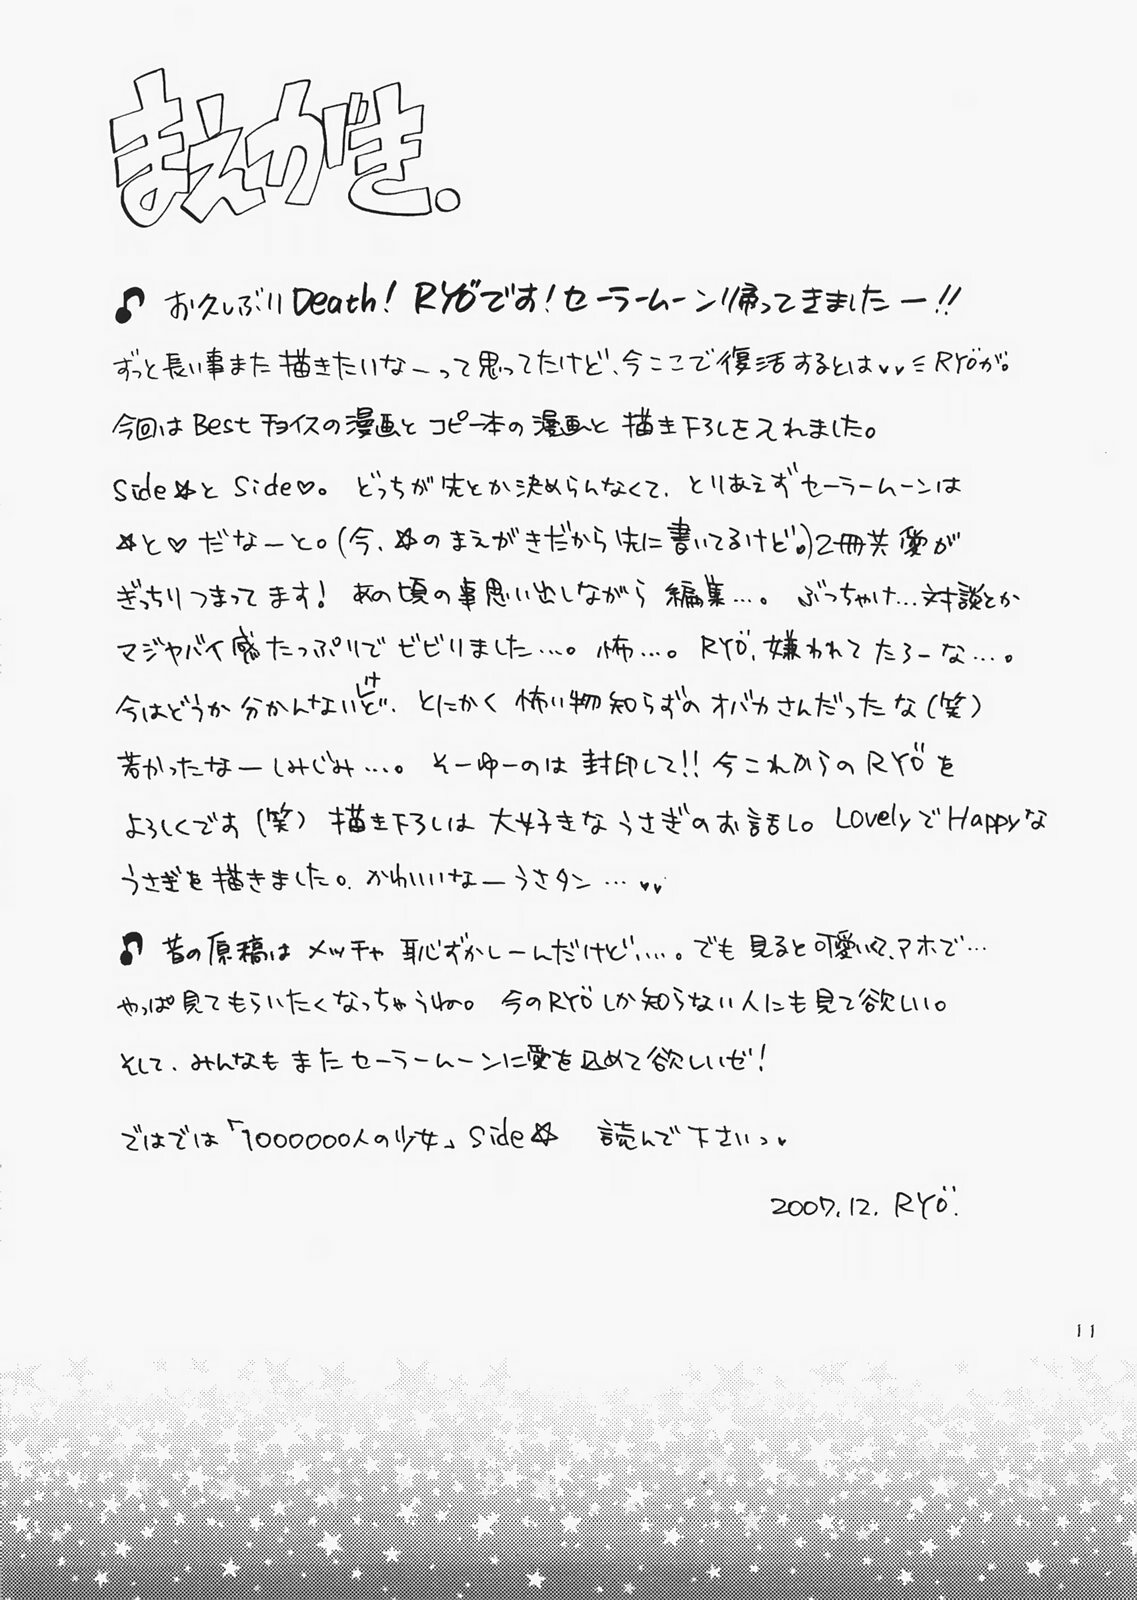 まえがき.
♪ お久しぶりDeath! RYöです!セーラームーン帰ってきましたー!!
ずっと長い事また描きたいなーって思ってたけど、今ここで復活するとは♥♥ミRYöが。
今回はBestチョイスの漫画とコピー本の漫画と描き下ろしを入れました。
Side☆とSide♡。どっちが先とか決めらんなくて、とりあえずセーラームーンは
☆と♡だなーと。(今、☆のまえがきだから先に書いてるけど。)2冊共愛が
ぎっちりつまってます!あの頃の事思い出しながら編集…。ぶっちゃけ…対談とか
マジヤバイ感たっぷりでビビりました…。怖…。RYö、嫌われてたろーな…。
今はどうか分かんないけど、とにかく怖い物知らずのオバカさんだったな(笑)
若かったなーしみじみ…。そーゆーのは封印して!!今これからのRYöを
よろしくです(笑)描き下ろしは大好きなうさぎのお話し。LovelyでHappyな
うさぎを描きました。かわいいなーうさタン…♥♥
♪ 昔の原稿はメッチャ恥ずかしーんだけど…。でも見ると可愛いくて、アホで…
やっぱ見てもらいたくなっちゃうね。今のRYöしか知らない人にも見て欲しい。
そして、みんなもまたセーラームーンに愛を込めて欲しいゼ!
ではでは「1000000人の少女」Side☆ 読んで下さいっ♥
2007.12. RYö.
11